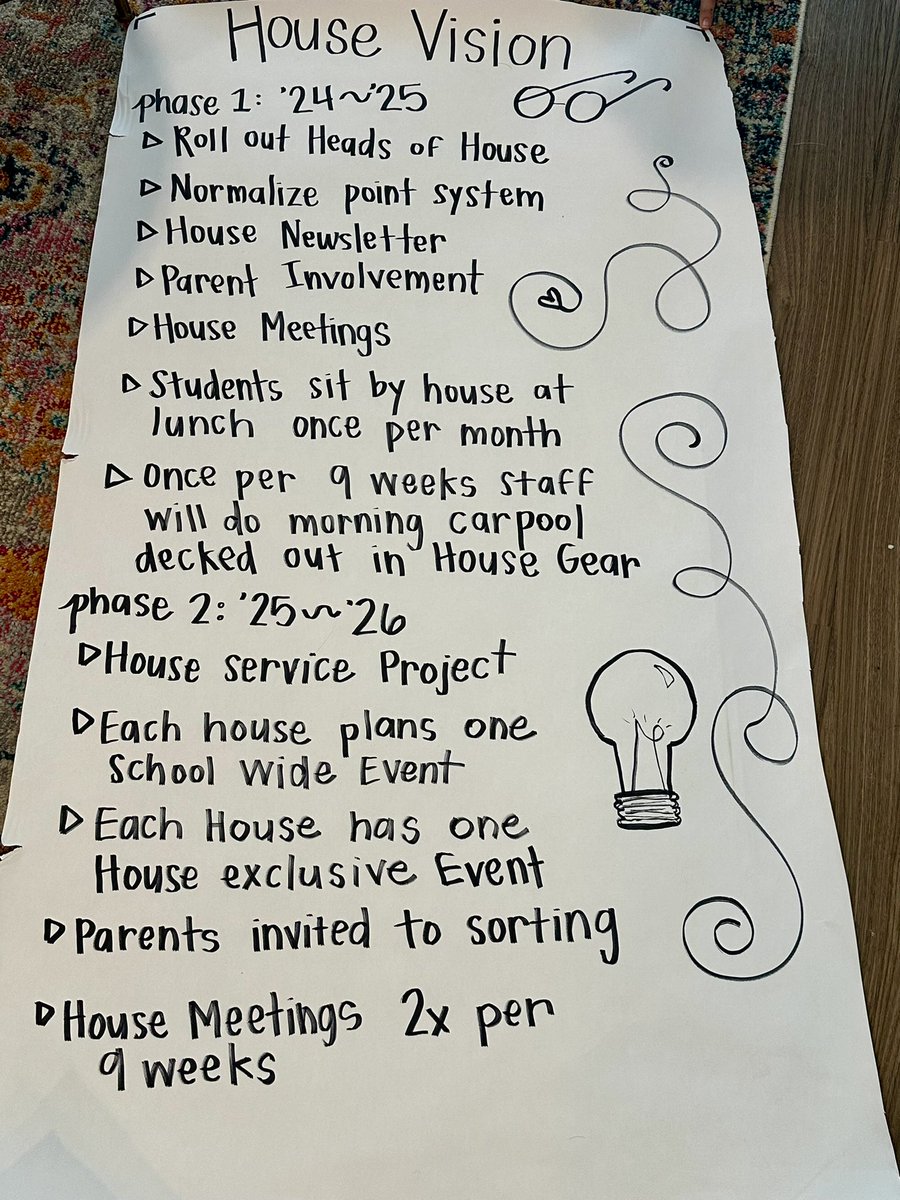 House Vision
phase 1: '24~'25
▷ Roll out Heads of House
▷ Normalize point system
▷ House Newsletter
▷ Parent Involvement
▷ House Meetings
▷ Students sit by house at
lunch once per month
▷ Once per 9 weeks staff
will do morning carpool
decked out in House Gear
phase 2: '25~'26
▷ House service Project
▷ Each house plans one
School Wide Event
▷ Each House has one
House exclusive Event
▷ Parents invited to sorting
▷ House Meetings 2x per
9 weeks